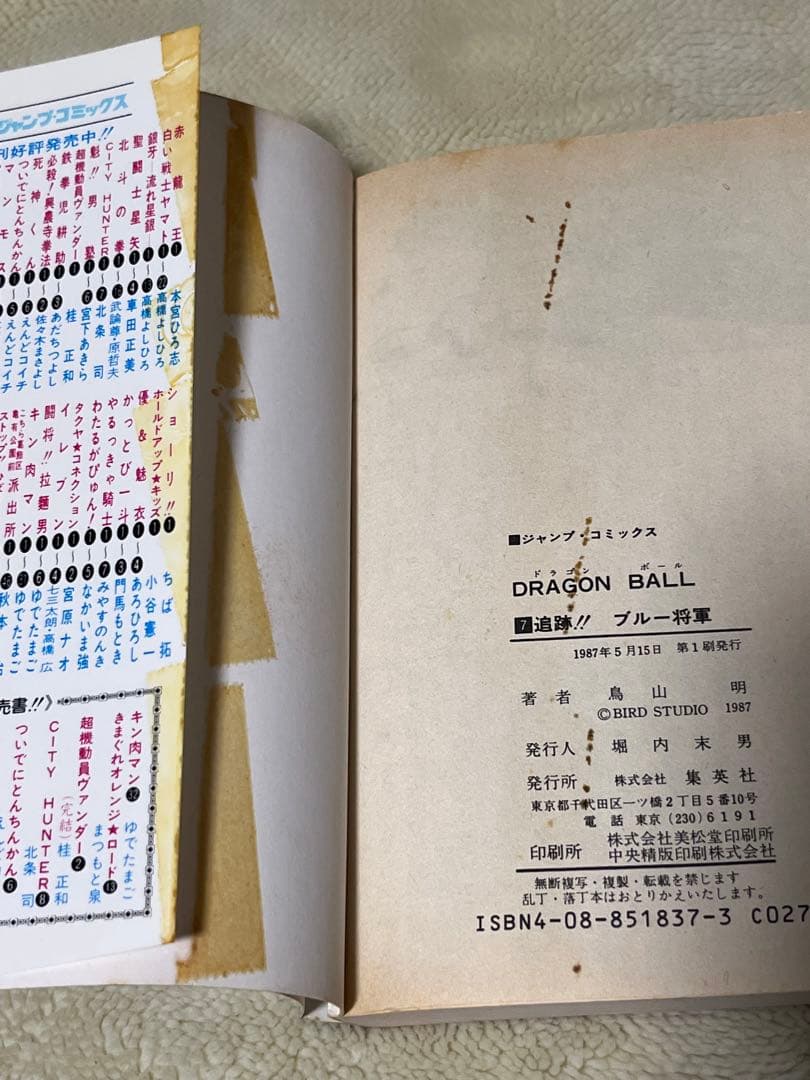 ジャンプ・コミックス
刊好評発売中!!
赤龍王 ❶ 本宮ひろ志
白い戦士ヤマト ❶〜㉒ 高橋よしひろ
銀牙―流れ星銀― ❶〜⓭ 高橋よしひろ
聖闘士星矢 ❶〜❹ 車田正美
北斗の拳 ❶〜 武論尊・原哲夫
CITY HUNTER ❶〜❼ 北条司
魁!!男塾 ❶〜❻ 宮下あきら
超機動員ヴァンダー ❶ 桂正和
鉄拳児耕助 ❶〜❸ あだちつよし
必殺!興農寺拳法 ❶〜❷ 佐々木まさよし
死神くん ❶〜❻ えんどコイチ
ついでにとんちんかん ❶〜❺ えんどコイチ
マンモス
ショーリ!! ❶ ちば拓
ホールドアップ★キッズ ❶ 小谷憲一
優&魅衣 ❶〜❹ あろひろし
かっとび一斗 ❶〜❸ 門馬もとき
やるっきゃ騎士 ❶〜❼ みやすのんき
わたるがぴゅん! ❶〜❺ なかいま強
タクヤ★コネクション ❶〜❷ 宮原ナオ
イレブン ❶〜 七三太朗・高橋広
闘将!!拉麺男 ❶〜❻ ゆでたまご
キン肉マン ❶〜 ゆでたまご
こちら葛飾区亀有公園前派出所 ❶〜 秋本治
売書!!》
キン肉マン㉜ ゆでたまご
きまぐれオレンジ★ロード⓭ まつもと泉
超機動員ヴァンダー❷(完結) 桂正和
CITY HUNTER❽ 北条司
ついでにとんちんかん❻
■ジャンプ・コミックス
ドラゴン ボール
DRAGON BALL
7追跡!! ブルー将軍
1987年5月15日 第1刷発行
著者 鳥山明
©BIRD STUDIO 1987
発行人 堀内末男
発行所 株式会社 集英社
東京都千代田区一ツ橋2丁目5番10号
電話 東京(230)6191
印刷所 株式会社美松堂印刷所
中央精版印刷株式会社
無断複写・複製・転載を禁じます
乱丁・落丁本はおとりかえいたします。
ISBN4-08-851837-3 C027